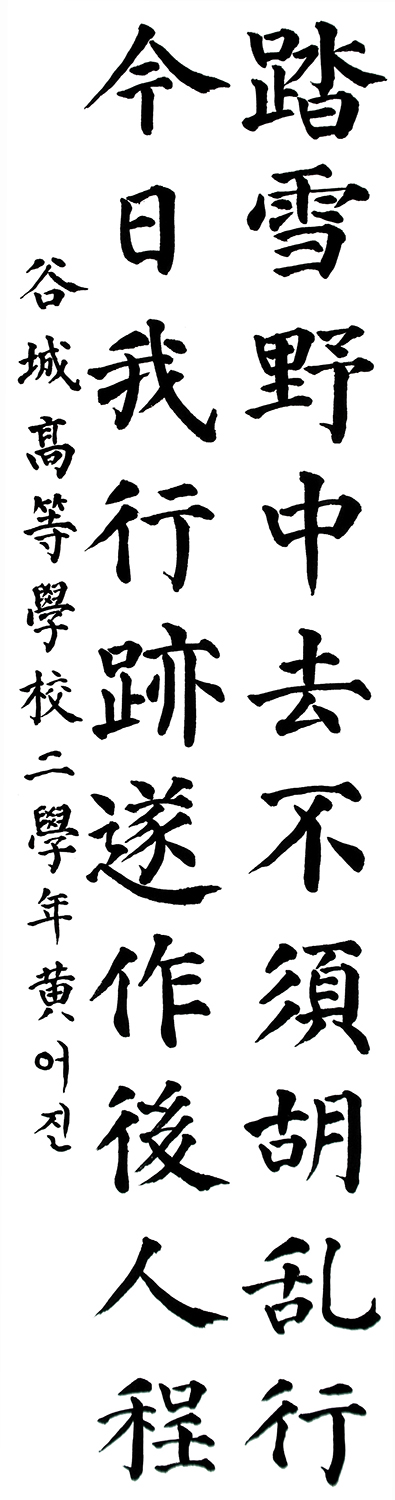 踏雪野中去不須胡乱行
今日我行跡遂作後人程
谷城高等學校二學年黄어진